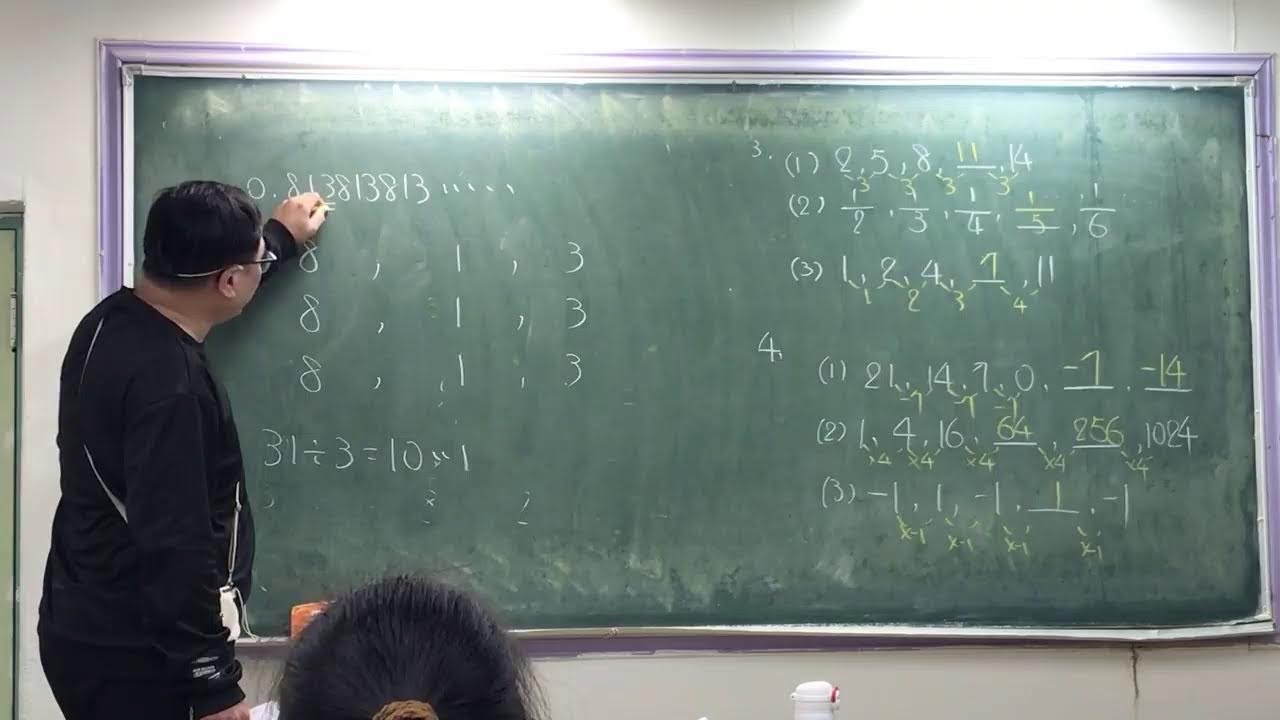 0.813813813……
8 , 1 , 3
8 , 1 , 3
8 , 1 , 3
31÷3=10…1
3.
(1) 2,5,8,11,14
3 3 3 3
(2) 1/2, 1/3, 1/4, 1/5, 1/6
(3) 1,2,4,7,11
1 2 3 4
4.
(1) 21,14,7,0,-7,-14
-7 -7 -7
(2) 1,4,16,64,256,1024
×4 ×4 ×4 ×4 ×4
(3) -1,1,-1,1,-1
×-1 ×-1 ×-1 ×-1